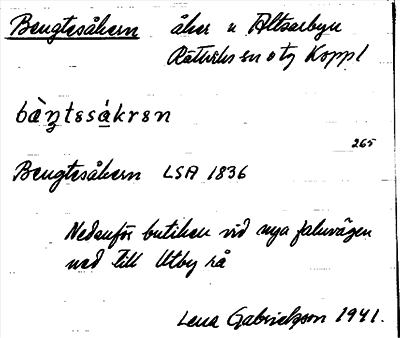 Bengtsåkern åker u Altsarbyn
Rättviks sn o tg Koppl
bàŋtəsákrən
265
Bengtsåkern LSA 1836
Nedanför butiken vid nya faluvägen
ned till Utby rå
Lena Gabrielsson 1941.